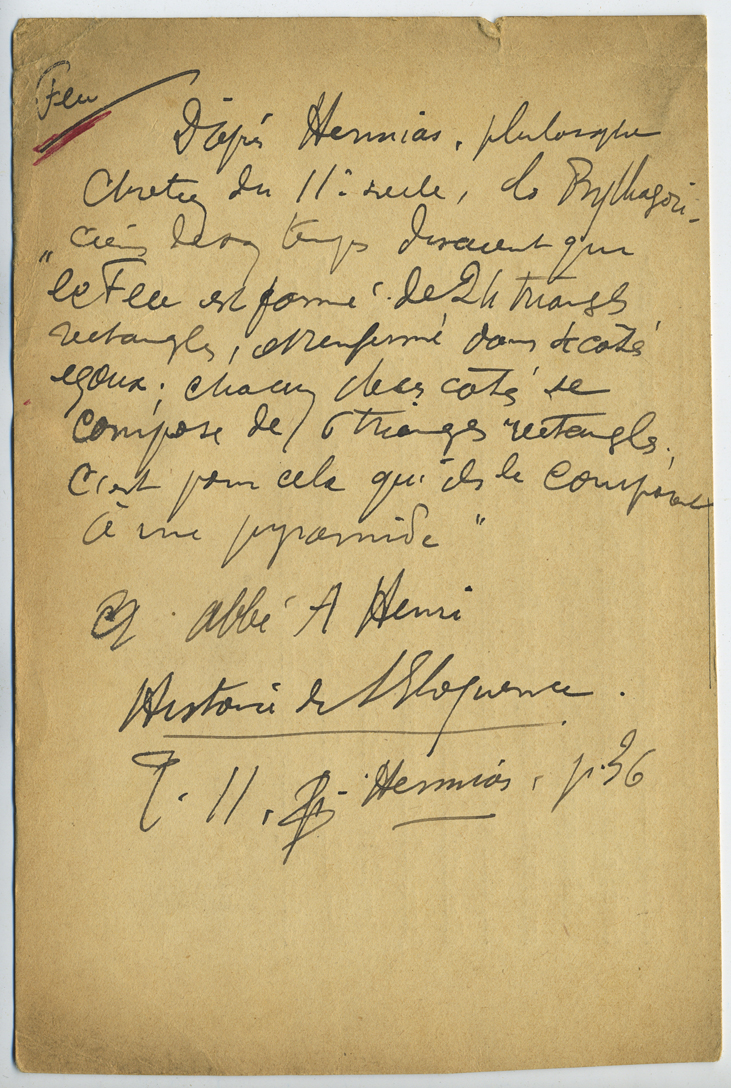 Feu
D'après Hermias, philosophe
Chretien du IIe siecle, les Pythagori-
ciens de son temps disaient que
"le Feu est formé de 24 triangles
rectangles, et renfermé dans 4 cotés
egaux; chacun de ces cotés se
compose de 6 triangles rectangles.
C'est pour cela qu'ils le comparent
à une pyramide"
abbé A Henri
Histoire de l'Eloquence.
T. II, Hermias, p. 36